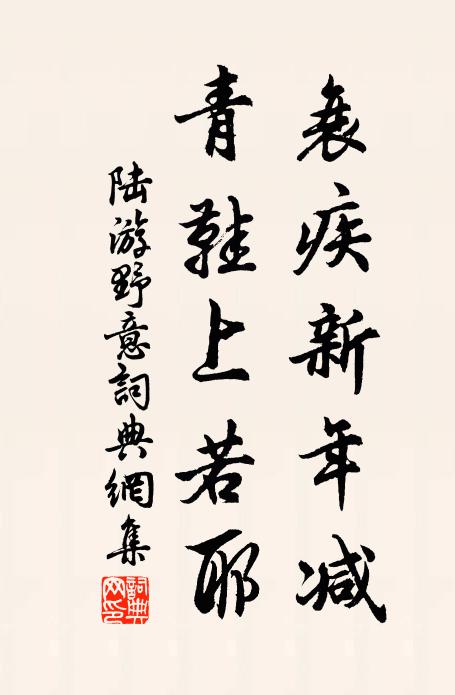 衰疾新年减
青鞋上若耶
陆游野意詞典網集
詞典网印